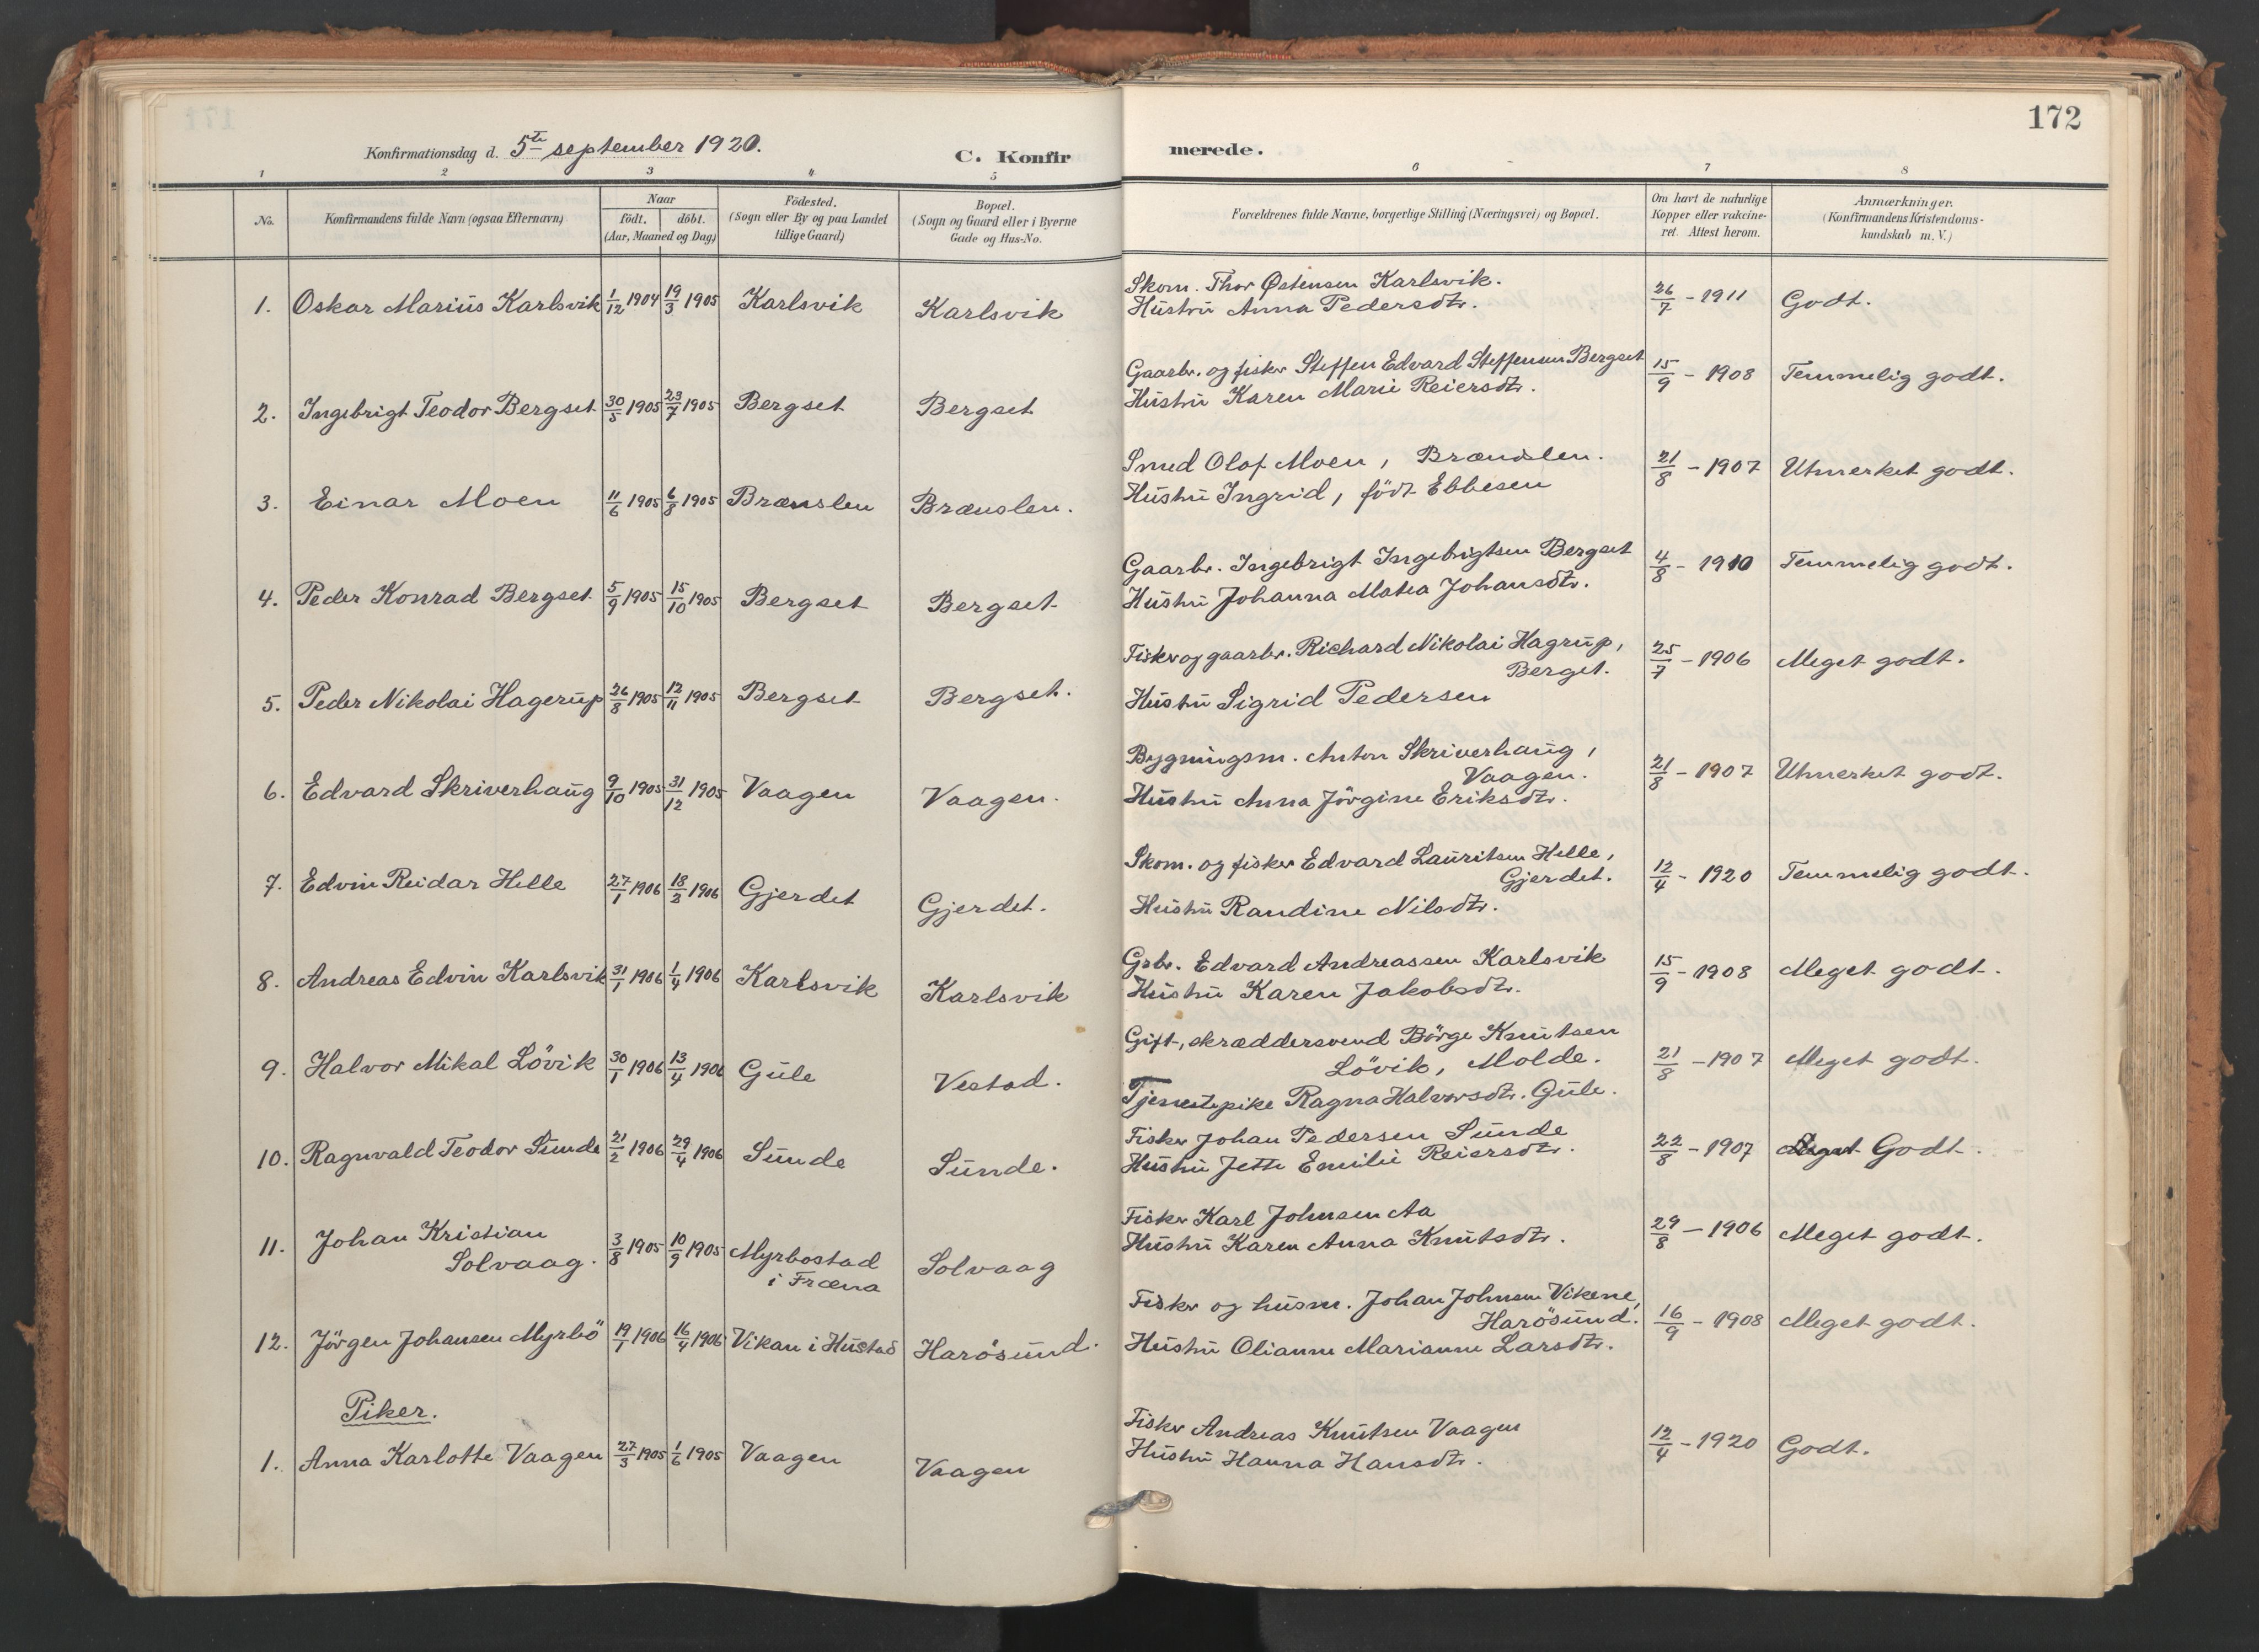 172
Konfirmationsdag d. 5te september 1920.
C. Konfirmerede.
1 2 3 4 5 6 7 8
No.
Konfirmandens fulde Navn (ogsaa Efternavn)
Naar
födt. döbt.
(Aar, Maaned og Dag)
Födested.
(Sogn eller By og paa Landet
tillige Gaard)
Bopæl.
(Sogn og Gaard eller i Byerne
Gade og Hus-No.
Forældrenes fulde Navne, borgerlige Stilling (Næringsvei) og Bopæl.
Om havt de naturlige
Kopper eller vakcine-
ret. Attest herom.
Anmærkninger.
(Konfirmandens Kristendoms-
kundskab m. V.)
1. Oskar Marius Karlsvik 1/12 1904 19/3 1905 Karlsvik Karlsvik
Skom. Thor Østensen Karlsvik.
Hustru Anna Pedersdtr.
26/7 - 1911 Godt.
2. Ingebrigt Teodor Bergset 30/5 1905 23/7 1905 Bergset Bergset
Gaarbr. og fisker Steffen Edvard Steffensen Bergset
Hustru Karen Marie Reiersdtr.
15/9 - 1908 Temmelig godt.
3. Einar Moen 11/6 1905 6/8 1905 Brænslen Brænslen.
Smed Olaf Moen, Brænslen.
Hustru Ingrid, födt Ebbesen
21/8 - 1907 Utmerket godt.
4. Peder Konrad Bergset 5/9 1905 15/10 1905 Bergset Bergset
Gaarbr. Ingebrigt Ingebrigtsen Bergset
Hustru Johanna Matea Johansdtr.
4/8 - 1910 Temmelig godt.
5. Peder Nikolai Hagerup 26/8 1905 12/11 1905 Bergset Bergset.
Fisker og gaarbr. Richard Nikolai Hagrup,
Berget.
Hustru Sigrid Pedersen
25/7 - 1906 Meget godt.
6. Edvard Skriverhaug 9/10 1905 31/12 1905 Vaagen Vaagen.
Bygningsm. Anton Skriverhaug,
Vaagen.
Hustru Anna Jörgine Eriksdtr.
21/8 - 1907 Utmerket godt.
7. Edvin Reidar Helle 27/1 1906 18/2 1906 Gjerdet Gjerdet.
Skom. og fisker Edvard Lauritsen Helle,
Gjerdet.
Hustru Randine Nilsdtr.
12/4 - 1920 Temmelig godt.
8. Andreas Edvin Karlsvik 31/1 1906 1/4 1906 Karlsvik Karlsvik
Grbr. Edvard Andreassen Karlsvik
Hustru Karen Jakobsdtr.
15/9 - 1908 Meget godt.
9. Halvor Mikal Lövik 30/1 1906 13/4 1906 Gule Vestad.
Gift, skræddersvend Börge Knutsen
Lövik, Molde.
Tjenestepike Ragna Halvorsdtr. Gule.
21/8 - 1907 Meget godt.
10. Ragnvald Teodor Sunde 21/2 1906 29/4 1906 Sunde Sunde.
Fisker Johan Pedersen Sunde
Hustru Jette Emilie Reiersdtr.
22/8 - 1907 Meget Godt.
11. Johan Kristian
Solvaag. 3/8 1905 10/9 1905 Myrbostad
i Fræna Solvaag
Fisker Karl Johnsen Aa
Hustru Karen Anna Knutsdtr.
29/8 - 1906 Meget godt.
12. Jörgen Johansen Myrbö 19/1 1906 16/4 1906 Vikan i Hustad Harösund.
Fisker og husm. Johan Johnsen Vikene,
Harösund.
Hustru Olianne Marianne Larsdtr.
16/9 - 1908 Meget godt.
Piker.
1. Anna Karlotte Vaagen 27/3 1905 1/6 1905 Vaagen Vaagen
Fisker Andreas Knutsen Vaagen
Hustru Hanna Hansdtr.
12/4 - 1920 Godt.